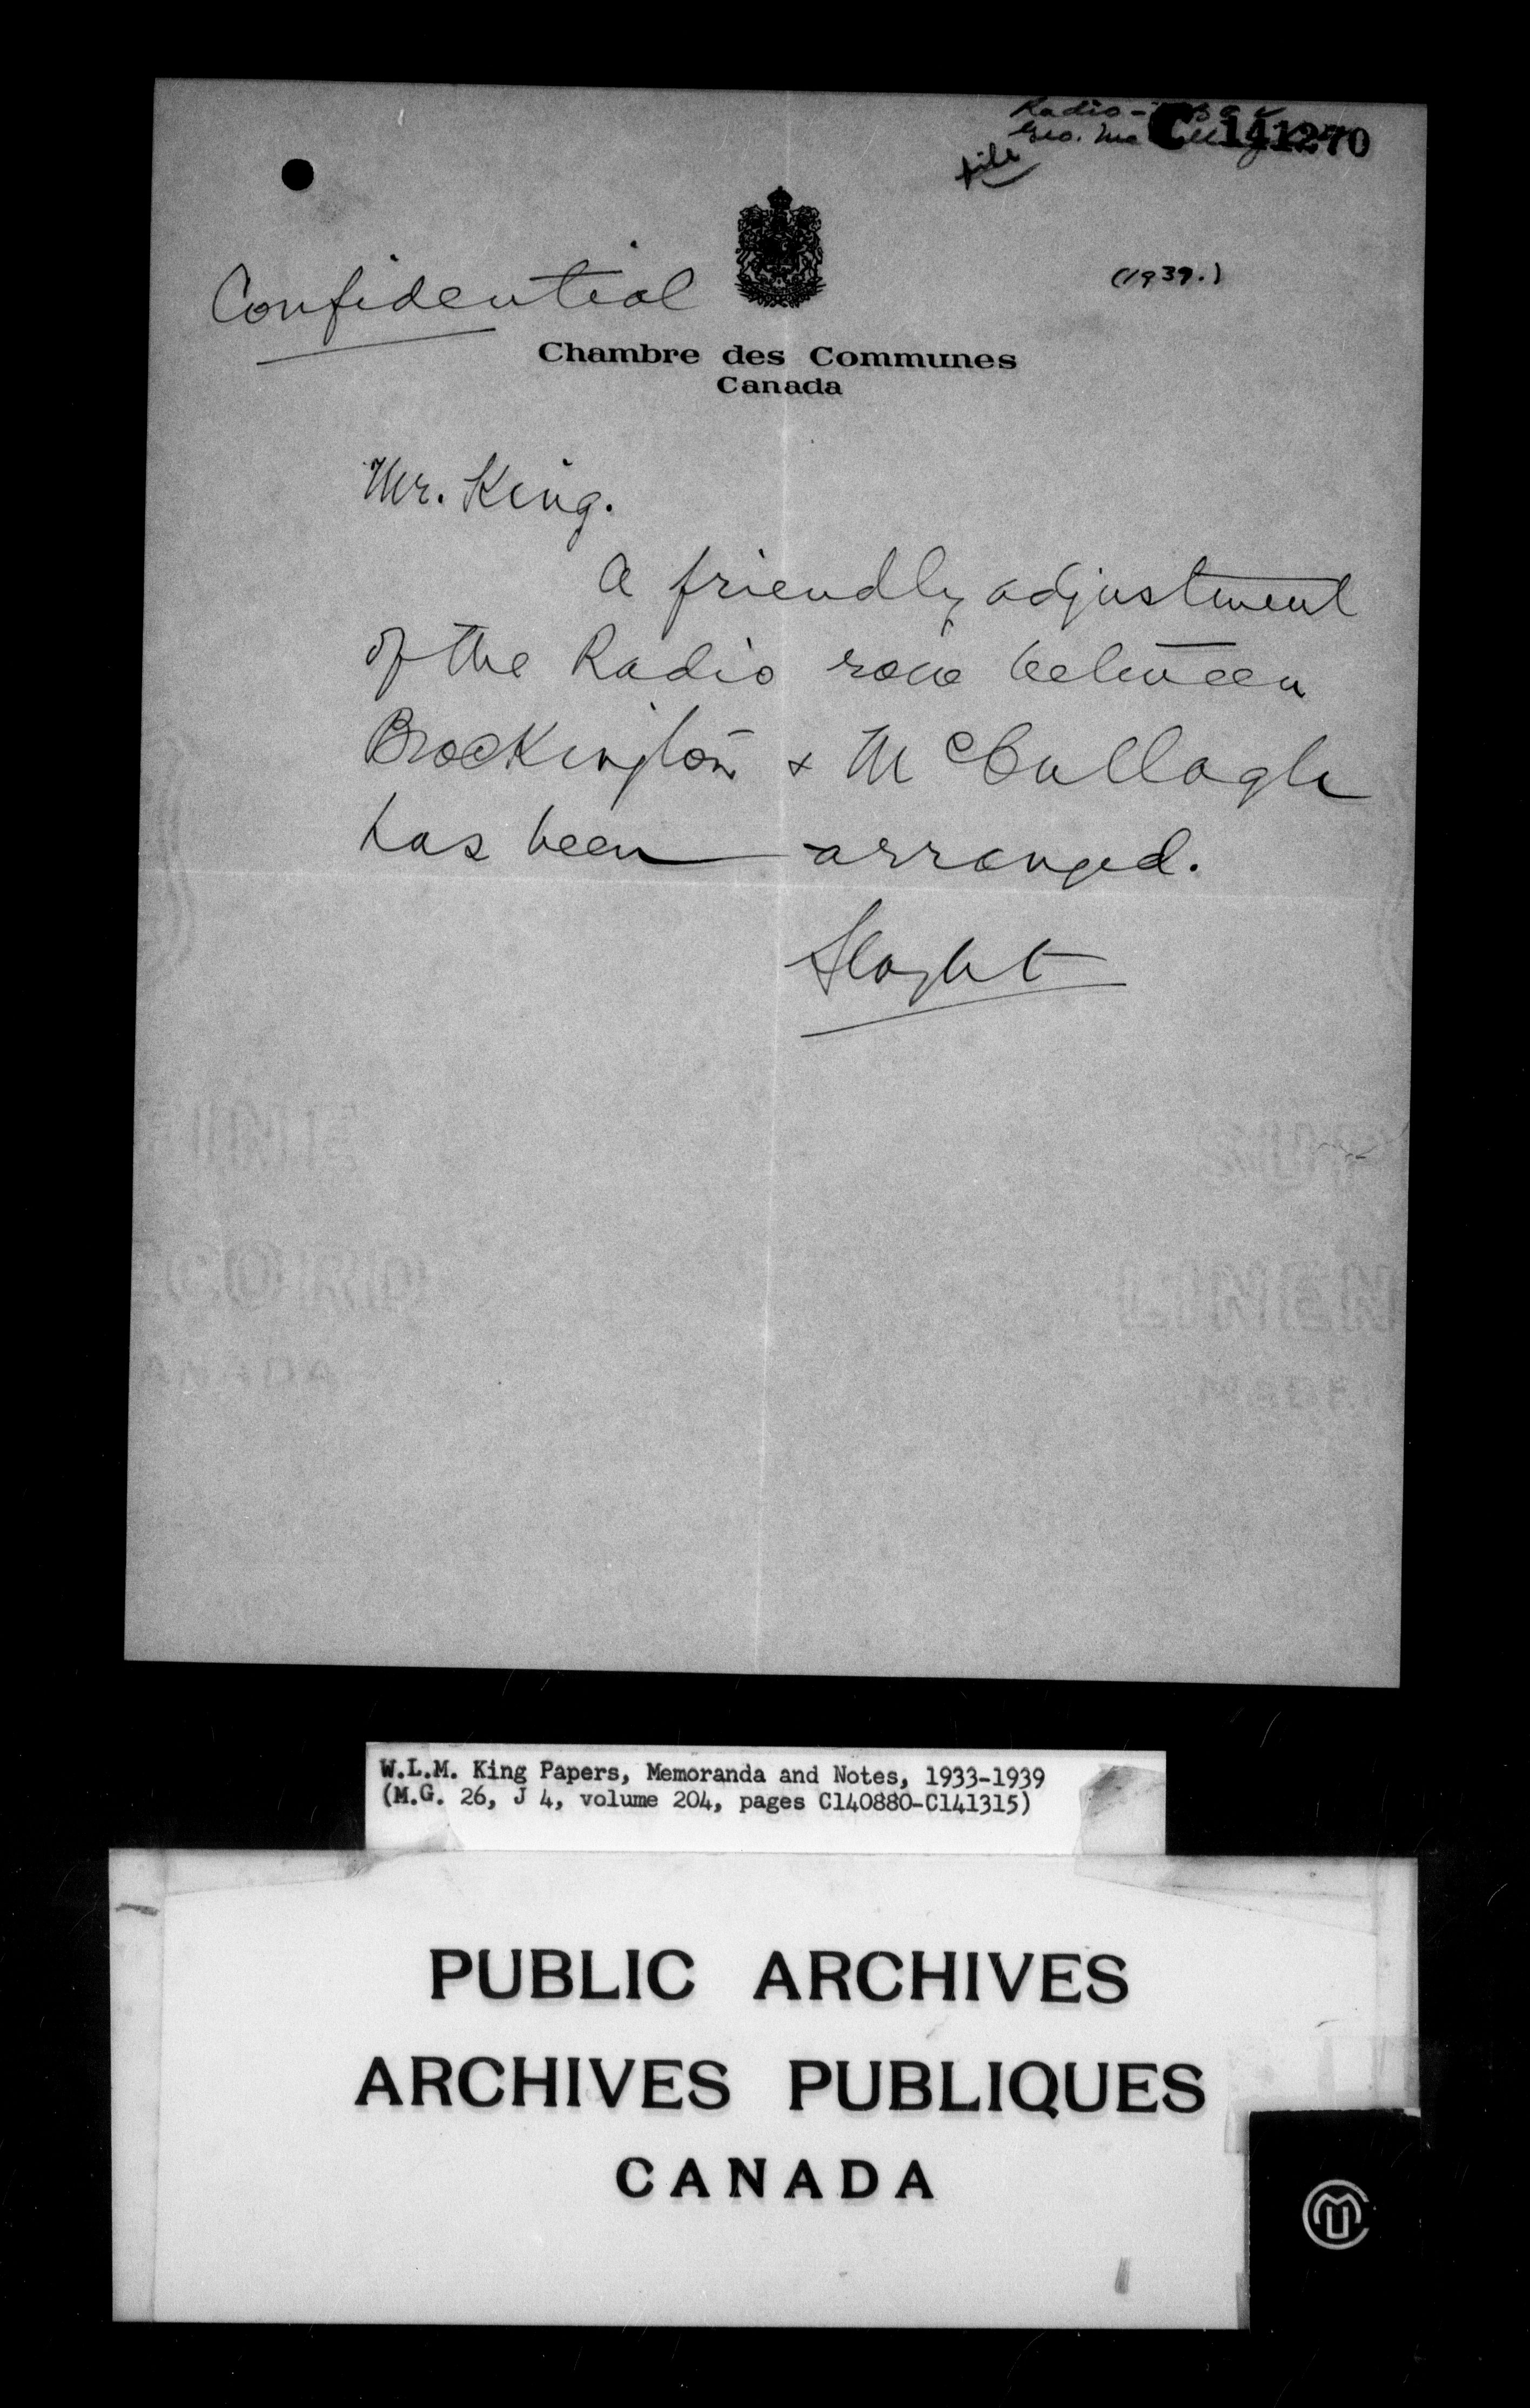 Radio -
Geo. Mc
C 141270
file
Confidential
(1939.)
Chambre des Communes
Canada
Mr. King.
A friendly adjustment
of the Radio row between
Brockington & McCullagh
has been arranged.
Slaght
FINE
SUP
ECORD
LINEN
ANADA
MADE IN
W.L.M. King Papers, Memoranda and Notes, 1933-1939
(M.G. 26, J 4, volume 204, pages C140880-C141315)
PUBLIC ARCHIVES
ARCHIVES PUBLIQUES
CANADA